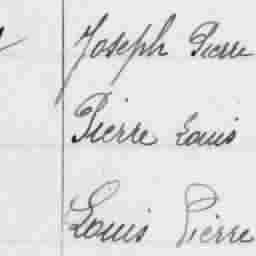 Joseph Pierre
Pierre Louis
Louis Pierre